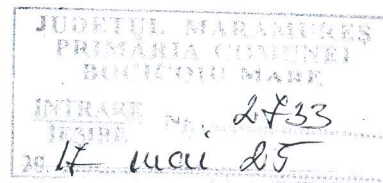 JUDEȚUL MARAMUREȘ
PRIMĂRIA COMUNEI
BOCICOIU MARE
INTRARE
IEȘIRE Nr. 2733
20 17 mai 25